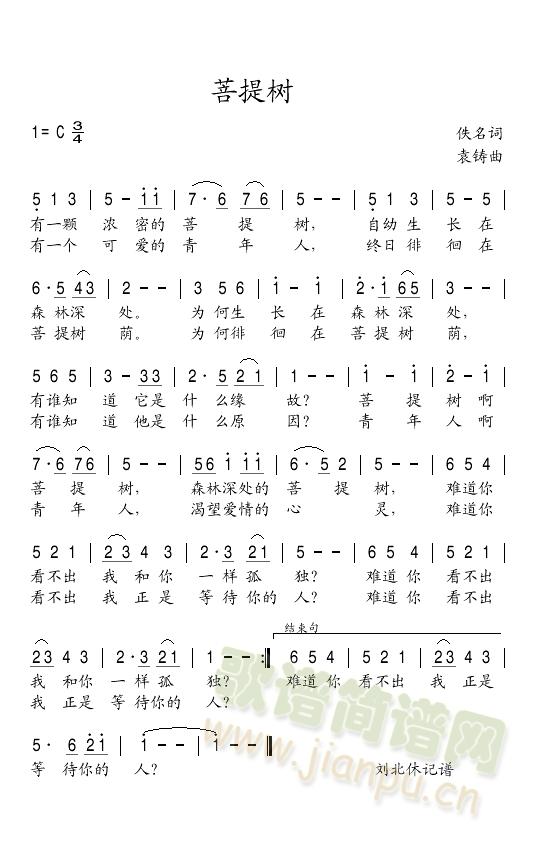 菩提树
1= C 3/4
佚名词
袁铸曲
5 1 3 | 5 - i i | 7· 6 7 6 | 5 - - | 5 1 3 | 5 - 5 |
有一颗 浓 密的 菩 提 树, 自幼生 长 在
有一个 可 爱的 青 年 人, 终日徘 徊 在
6· 5 4 3 | 2 - - | 3 5 6 | i - i | 2· i 6 5 | 3 - - |
森 林深 处。 为 何生 长 在 森 林 深 处,
菩 提树 荫。 为 何徘 徊 在 菩 提 树 荫,
5 6 5 | 3 - 3 3 | 2· 5 2 1 | 1 - - | i - i | 2 - i |
有谁知 道 它是 什 么缘 故? 菩 提 树 啊
有谁知 道 他是 什 么原 因? 青 年 人 啊
7· 6 7 6 | 5 - - | 5 6 i i i | 6· 5 2 | 5 - - | 6 5 4 |
菩 提 树, 森林深处的 菩 提 树, 难道你
青 年 人, 渴望爱情的 心 灵, 难道你
5 2 1 | 2 3 4 3 | 2· 3 2 1 | 1 - - | 6 5 4 | 5 2 1 |
看不出 我 和你 一 样孤 独? 难道你 看不出
看不出 我 正是 等 待你的 人? 难道你 看不出
结束句
2 3 4 3 | 2· 3 2 1 | 1 - - :‖ 6 5 4 | 5 2 1 | 2 3 4 3 |
我 和你 一 样孤 独? 难道你 看不出 我 正是
我 正是 等 待你的 人?
5· 6 2 i | i - - | i - - ‖
等 待你的 人? 刘北休记谱
歌谱简谱网
www.jianpu.cn